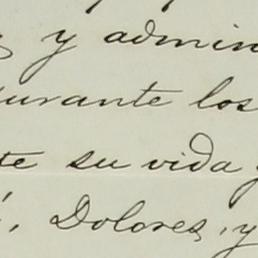 y admin
urante los
te su vida y
, Dolores, y